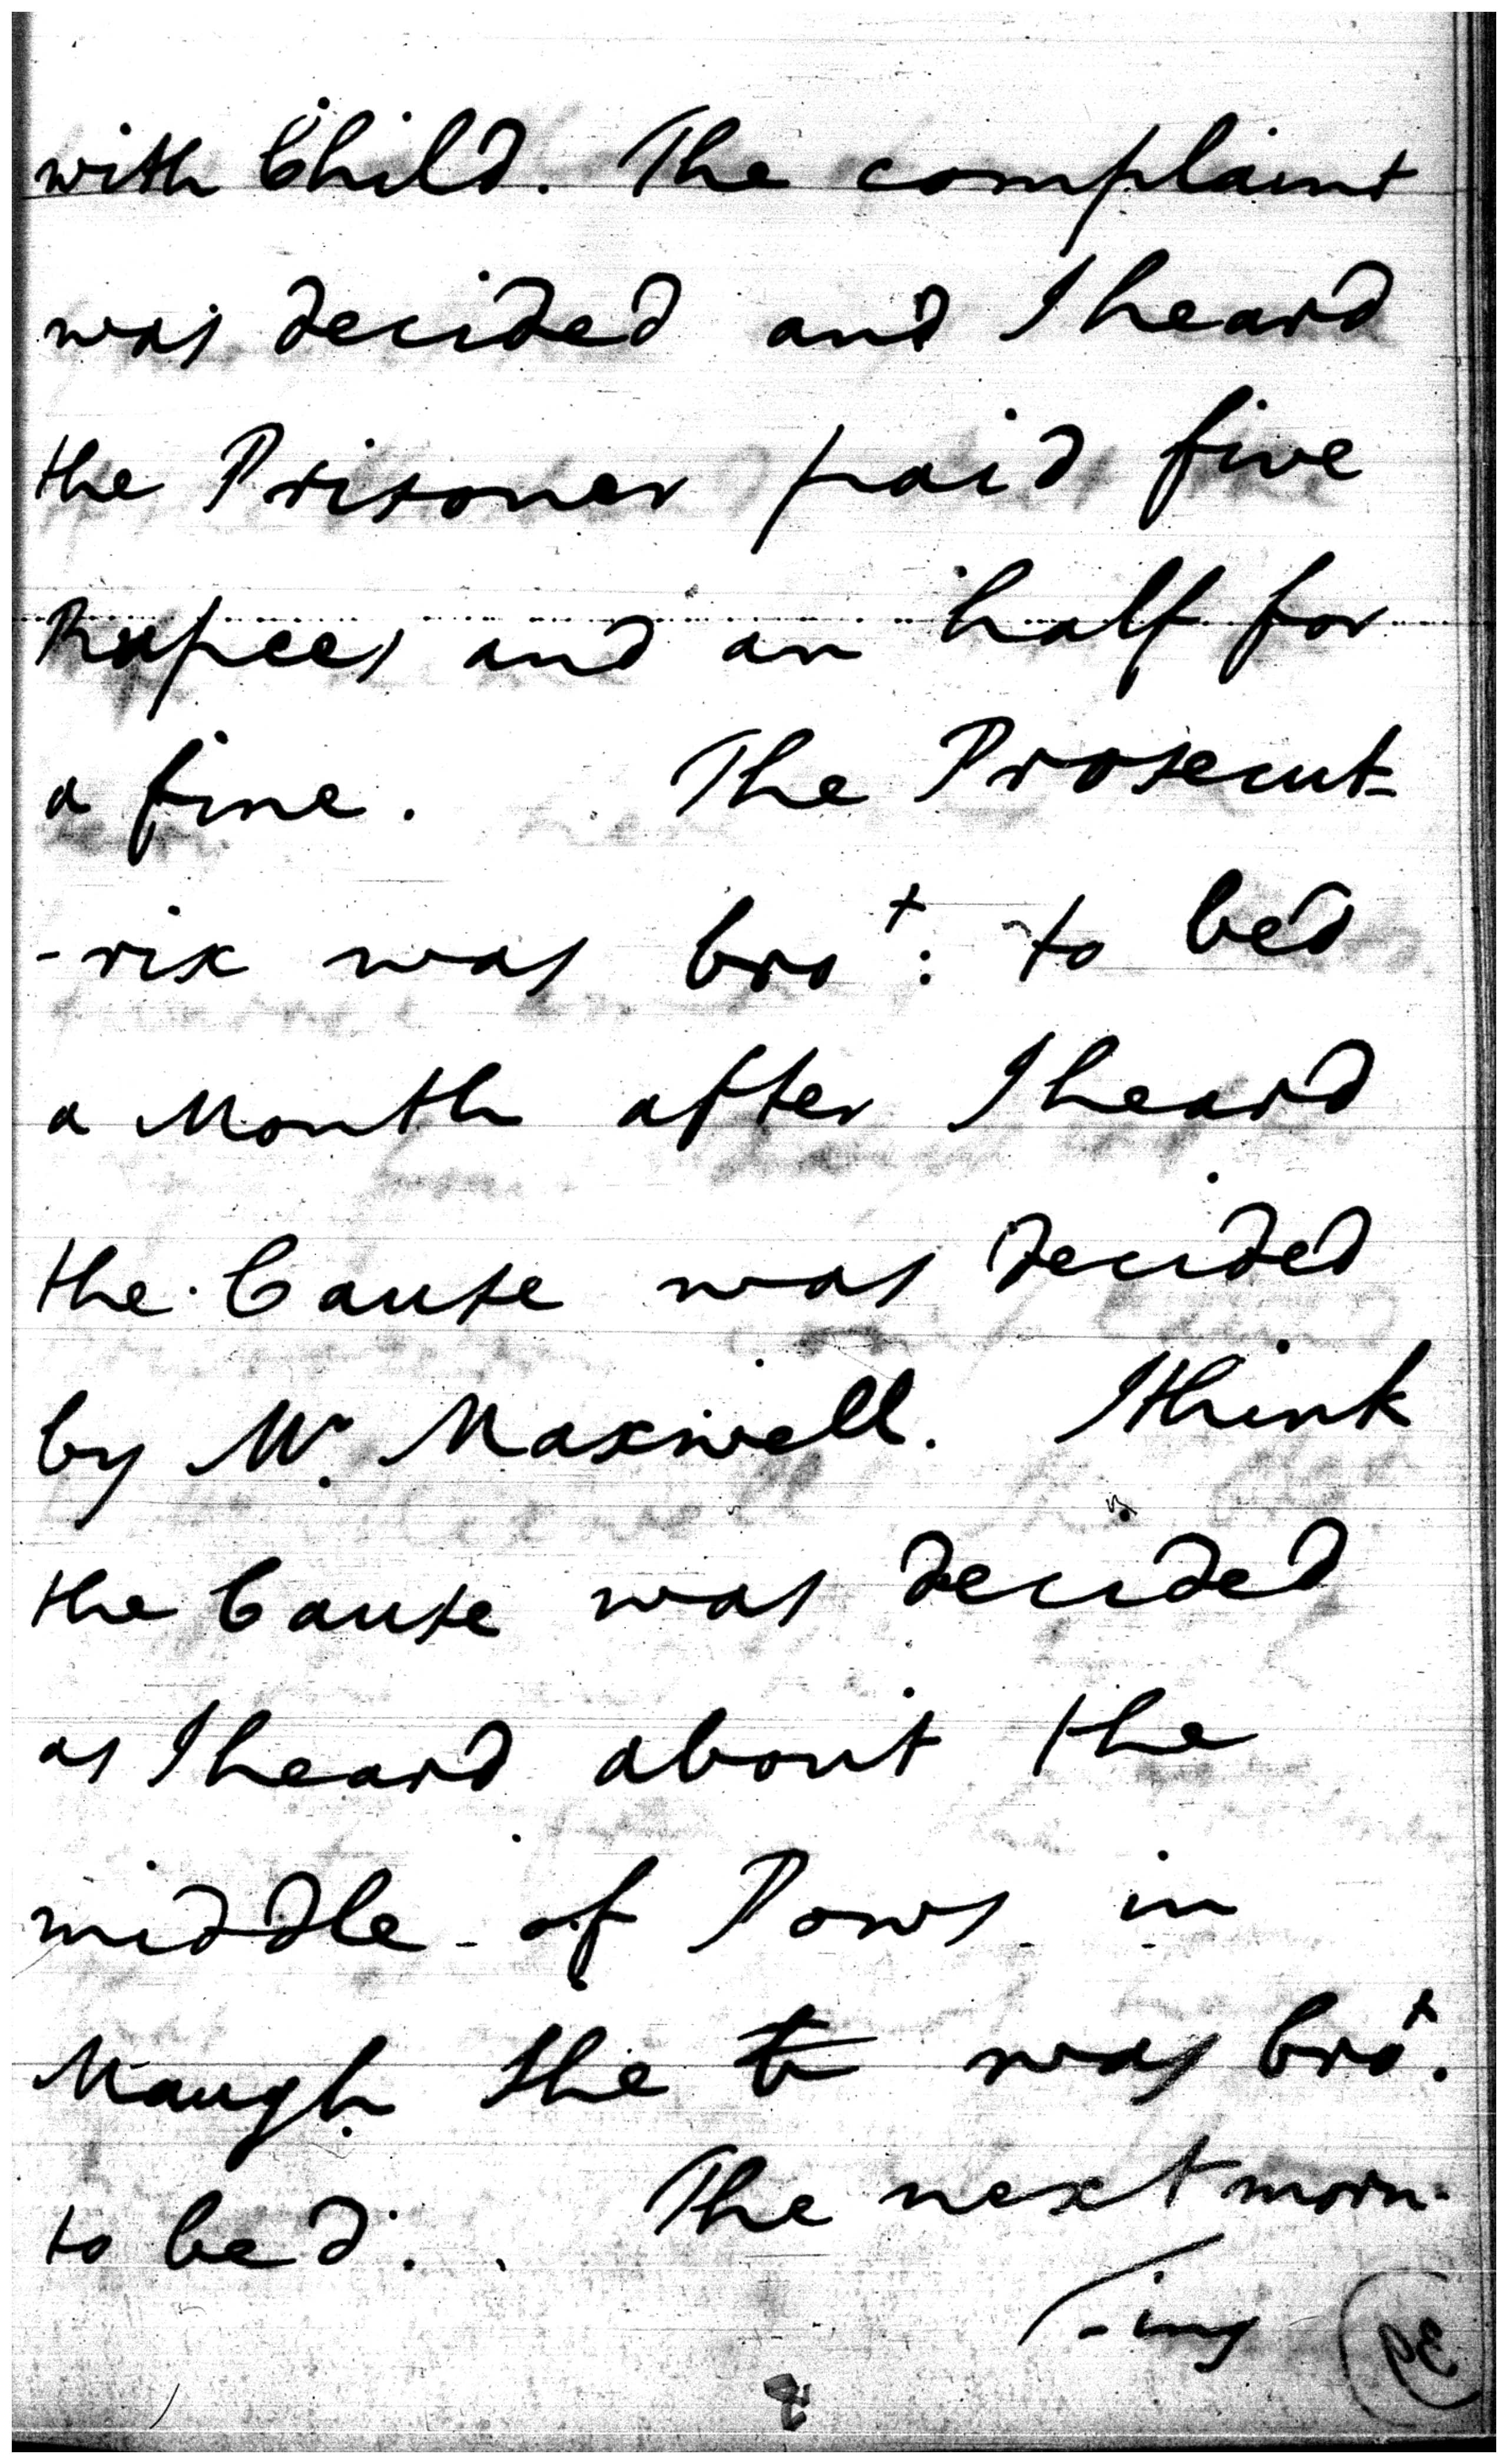 with Child. The complaint
was decided and I heard
the Prisoner paid five
Rupees and an half for
a fine. The Prosecut-
-rix was bro^t: to bed
a Month after I heard
the Cause was decided
by Mr. Maxwell. I think
the Cause was decided
as I heard about the
middle of Pows in
Maugh she was bro^t.
to bed. The next morn-
-ing